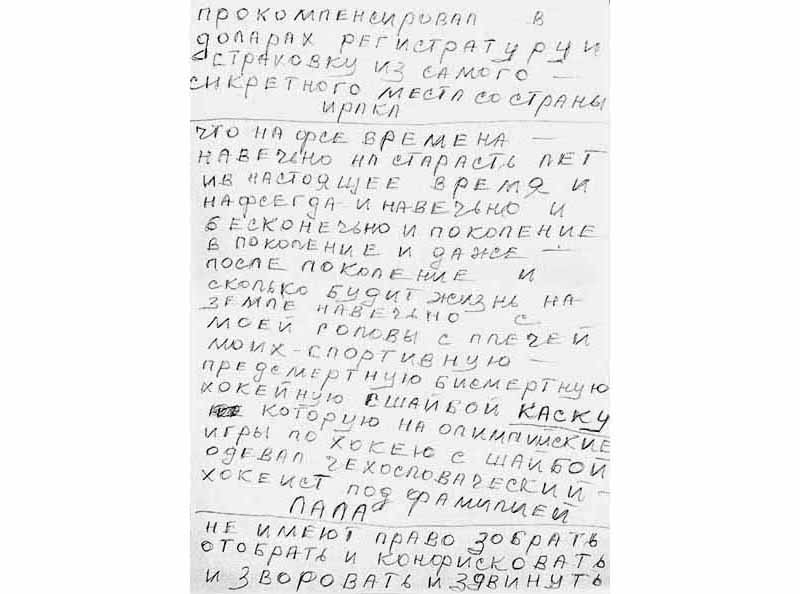 ПРОКОМПЕНСИРОВАЛ В
ДОЛАРАХ РЕГИСТРАТУРУ И
СТРАХОВКУ ИЗ САМОГО —
СИКРЕТНОГО МЕСТА СО СТРАНЫ
ИРАКА
ЧТО НА ФСЕ ВРЕМЕНА —
НАВЕЧЬНО НА СТАРАСТЬ ЛЕТ
И В НАСТОЯЩЕЕ ВРЕМЯ И
НАФСЕГДА И НАВЕЧЬНО И
БЕСКОНЕЧЬНО И ПОКОЛЕНИЕ
В ПОКОЛЕНИЕ И ДАЖЕ —
ПОСЛЕ ПОКОЛЕНИЕ И
СКОЛЬКО БУДИТ ЖИЗНЬ НА
ЗЕМЛЕ НАВЕЧЬНО С —
МОЕЙ ГОЛОВЫ С ПЛЕЧЕЙ
МОИХ-СПОРТИВНУЮ —
ПРЕДСМЕРТНУЮ БИСМЕРТНУЮ
ХОКЕЙНУЮ С ШАЙБОЙ КАСКУ
КОТОРУЮ НА ОЛИМПИЙСКИЕ
ИГРЫ ПО ХОКЕЮ С ШАЙБОЙ
ОДЕВАЛ ЧЕХОСЛОВАЧЕСКИЙ —
ХОКЕИСТ ПОД ФАМИЛИЕЙ
ЛАЛА
НЕ ИМЕЮТ ПРАВО ЗОБРАТЬ
ОТОБРАТЬ И КОНФИСКОВАТЬ
И ЗВОРОВАТЬ И ЗДВИНУТЬ